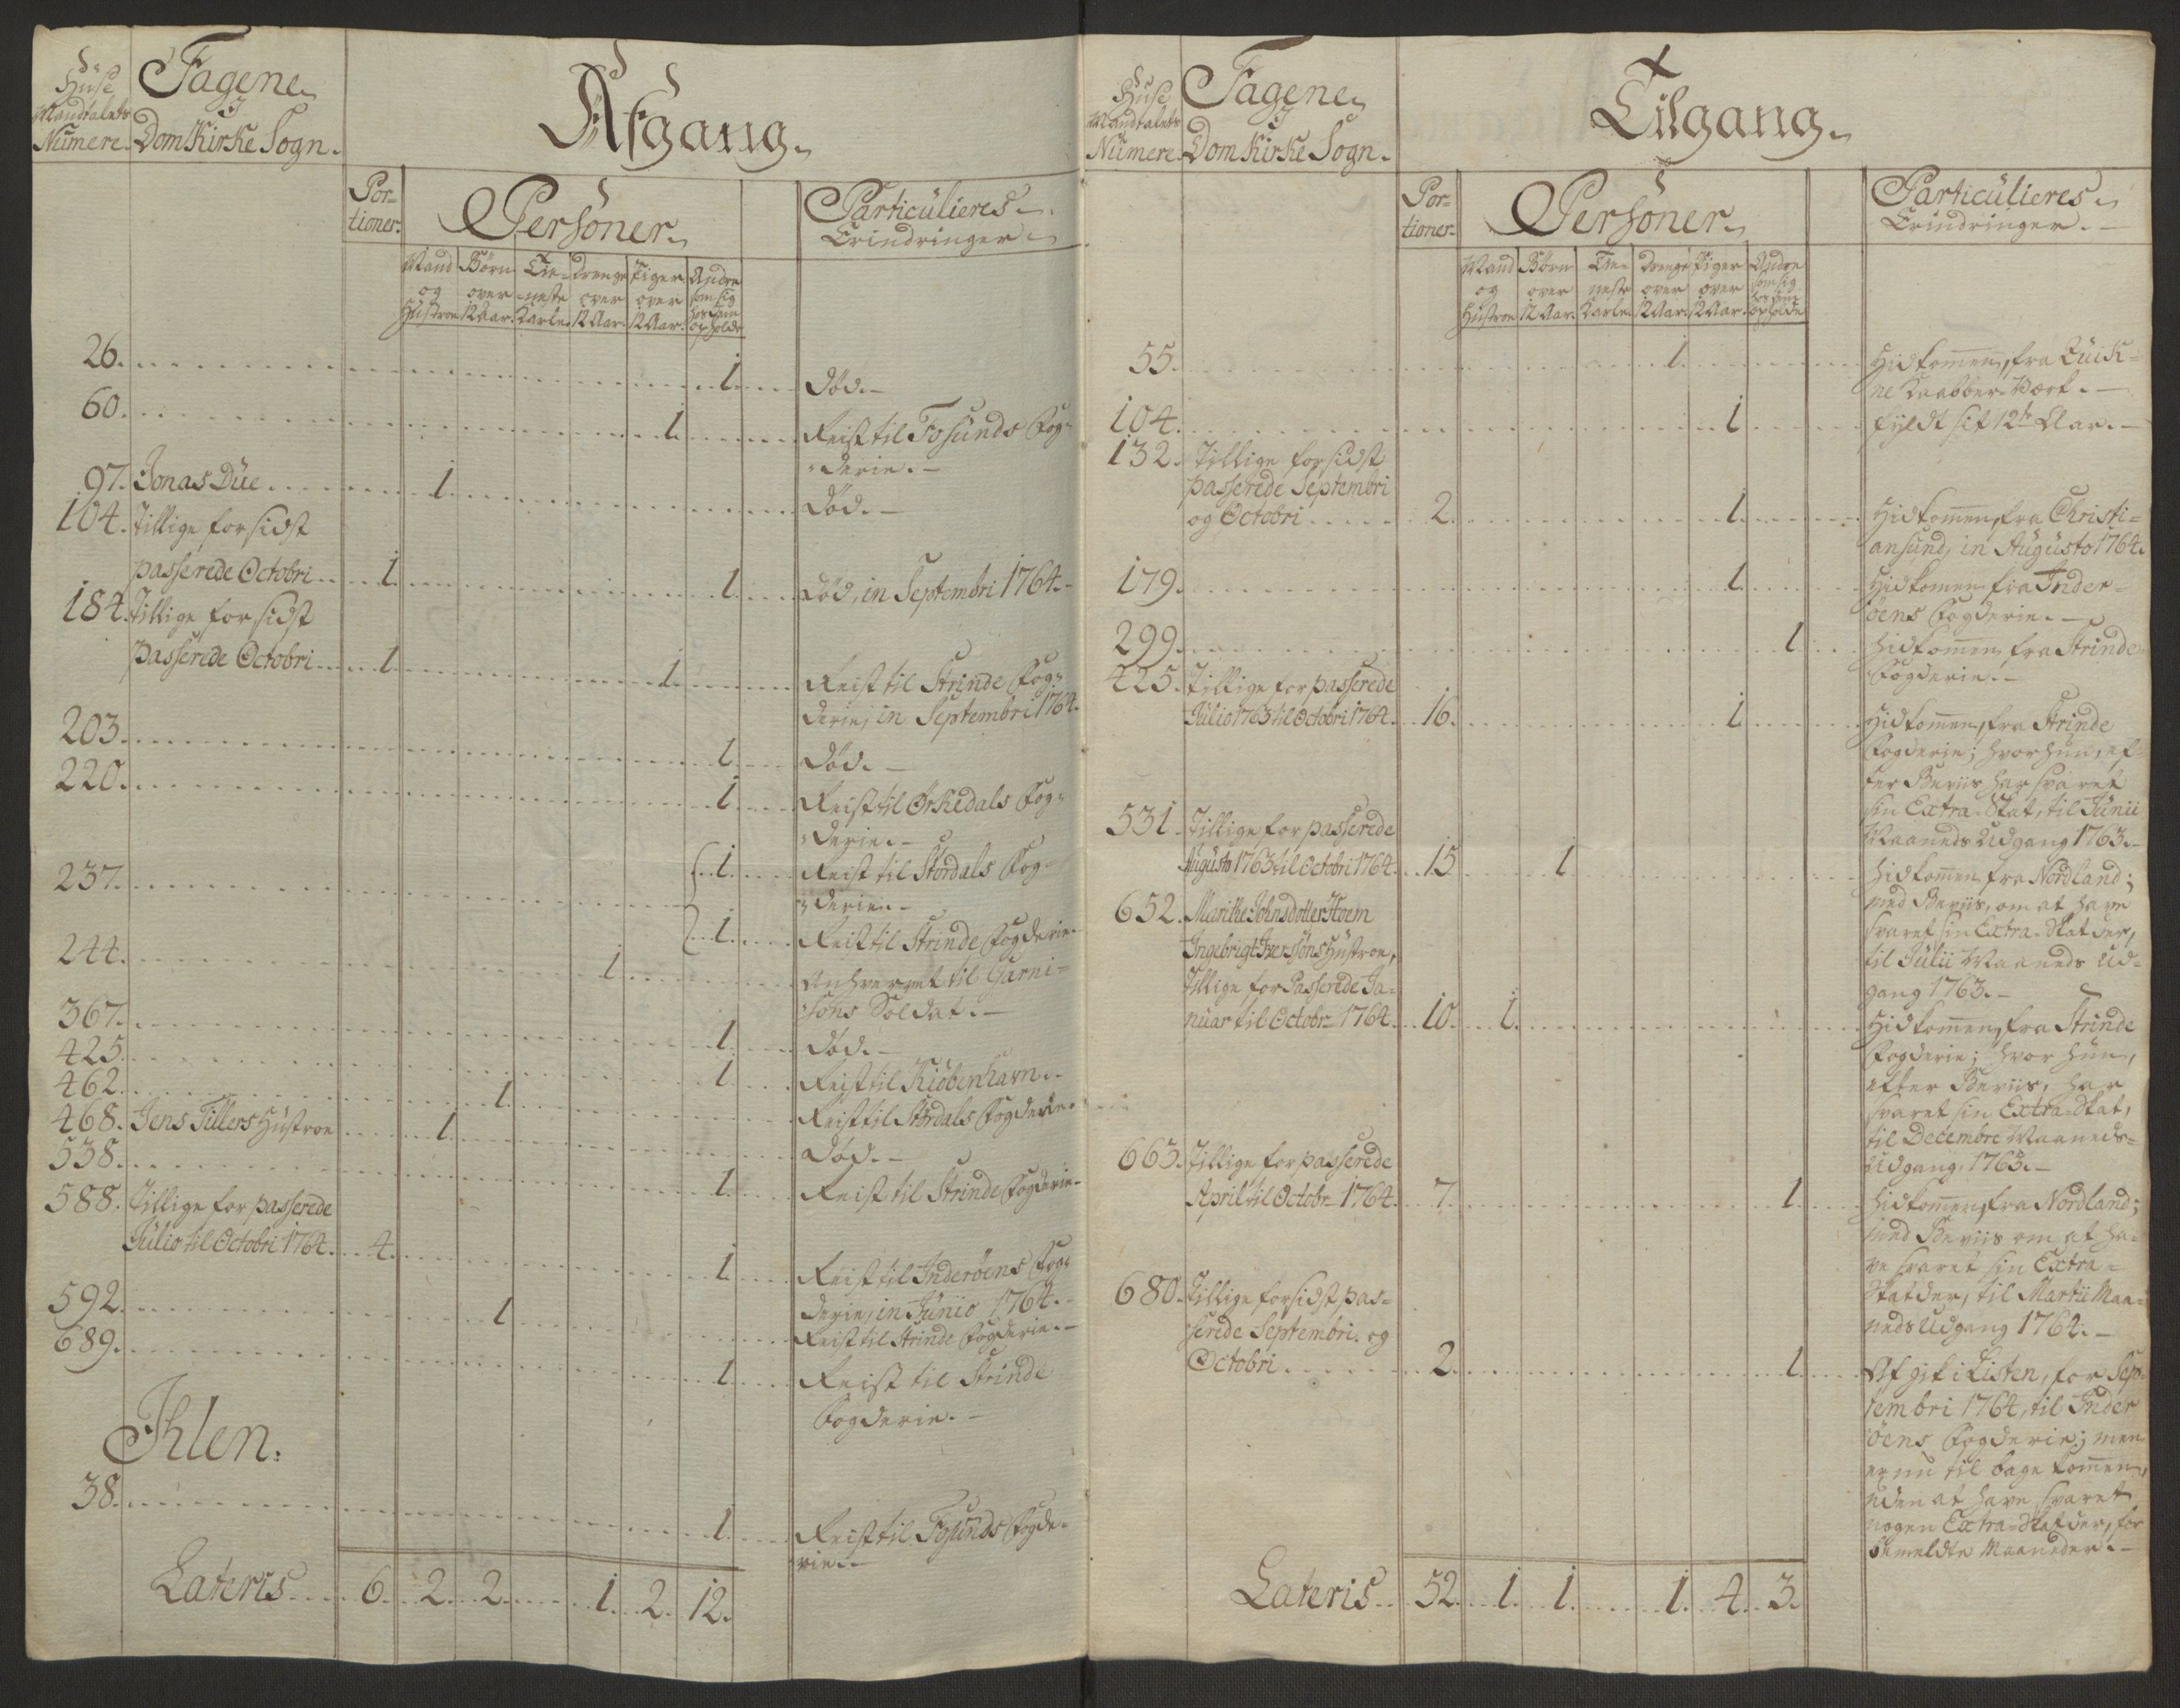 Huse
Mandtalets
Numere.
Tagene
I
Dom Kirke Sogn.
Afgang.
Por-
tioner.
Personer.
Particulieres
Erindringer
Mand
og
Hustroe
Børn
over
12 Aar.
Tie-
neste
Karle.
Drenge
over
12 Aar.
Piger
over
12 Aar.
Andre
som sig
hos ham
opholde
26. 1. død.-
60. 1. Reist til Fosunds Fog-
derie.-
97. Jonas Due 1. død.-
104. Tillige for sidst
passerede Octobri 1. 1. død, in Septembri 1764.-
184. Tillige for sidst
passerede Octobri 1. 1. Reist til Strinde Fog-
derie, in Septembri 1764.
203. 1. død.-
220. 1. Reist til Ørkedals Fog-
derie.-
237. 1. Reist til Stördals Fog-
derie.-
1. Reist til Strinde Fogderie.
244. 1. Anhvervet til Garni-
sons Soldat.-
367. 1. død.-
425. 1. Reist til Kiöbenhavn.-
462. 1. Reist til Stördals Fogderie.
468. Jens Tillers Hustroe 1. død.-
538. 1. Reist til Strinde Fogderie.
588. Tillige for passerede
Julio til Octobri 1764. 4. 1. Reist til Inderöens Fog-
derie, in Junio 1764.-
592. 1. Reist til Strinde Fogderie.-
689. 1. Reist til Strinde
Fogderie.-
Ihlen.
38. 1. Reist til Fosunds Fogde-
rie.-
Lateris 6. 2. 2. 1. 2. 12.
Huse
Mandtalets
Numere.
Tagene
I
Dom Kirke Sogn.
Tilgang.
Por-
tioner.
Personer.
Particulieres
Erindringer.-
Mand
og
Hustroe
Børn
over
12 Aar.
Tie-
neste
Karle.
Drenge
over
12 Aar.
Piger
over
12 Aar.
Andre
som sig
hos ham
opholde
55. 1. Hidkommen, fra Quik-
ne Kaabber-Værk.-
104. 1. fyldt sit 12te Aar.-
132. Tillige for sidst
passerede Septembri
og Octobri 2. 1. Hidkommen, fra Christi-
ansund, in Augusto 1764.
179. 1. Hidkommen fra Inder-
öens Fogderie.-
299. 1. Hidkommen fra Strinde
Fogderie.-
425. Tillige for passerede
Julio 1763 til Octobri 1764. 16. 1. Hidkommen, fra Strinde
Fogderie; hvor hun, ef-
ter Beviis har svaret
sin Extra-Skat, til Junii
Maaneds Udgang 1763.-
531. Tillige for passerede
Augusto 1763 til Octobri 1764. 15 1 Hidkommen fra Nordland;
med Beviis, om at have
svaret sin Extra-Skat der,
til Julii Maaneds Ud-
gang 1763.-
652. Marithe Johnsdotter Hoem
Ingebrigt Iversöns Hustroe,
Tillige for Passerede Ja-
nuar til Octobr- 1764. 10. 1. Hidkommen, fra Strinde
Fogderie; hvor hun,
efter Beviis, har
svaret sin Extra-Skat,
til Decembre Maaneds-
Udgang, 1763.-
665. Tillige for passerede
April til Octobr- 1764. 7. 1. Hidkommen, fra Nordland;
med Beviis om at ha-
ve svaret sin Extra-
Skat der, til Martii Maa-
neds Udgang 1764.-
680. Tillige for sidst pas-
serede Septembri. og
Octobri 2. 1. Afgik i Listen, for Sep-
tembri 1764, til Inder
öens Fogderie; men
er nu tilbage kommen,
uden at have svaret
nogen Extra-Skat der, for
bemeldte Maaneder.-
Lateris 52. 1. 1. 1. 4. 3.